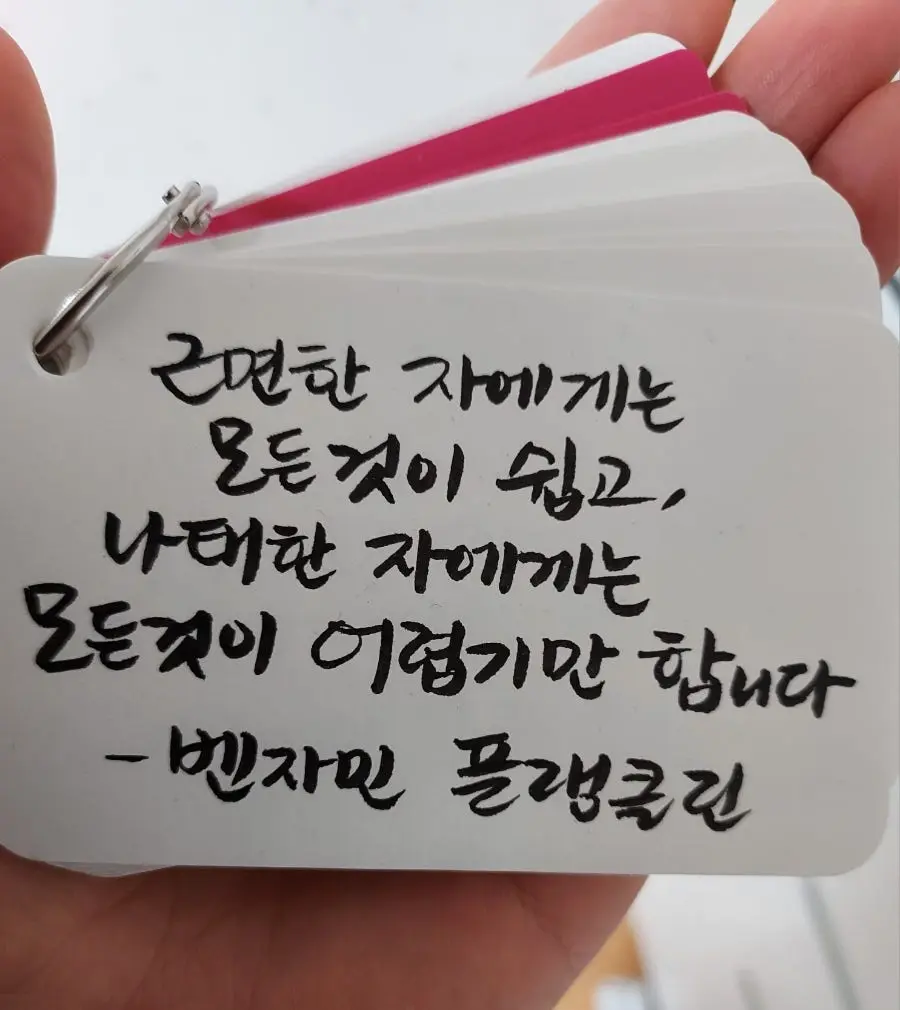 근면한 자에게는
모든것이 쉽고,
나태한 자에게는
모든것이 어렵기만 합니다
- 벤자민 플랭클린